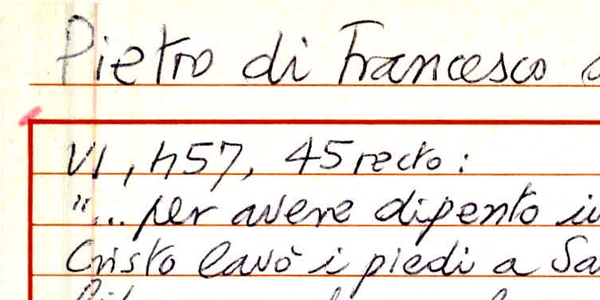 Pietro di Francesco
VI, h57, 45 recto:
"... per avere dipento
Cristo lavò i piedi a